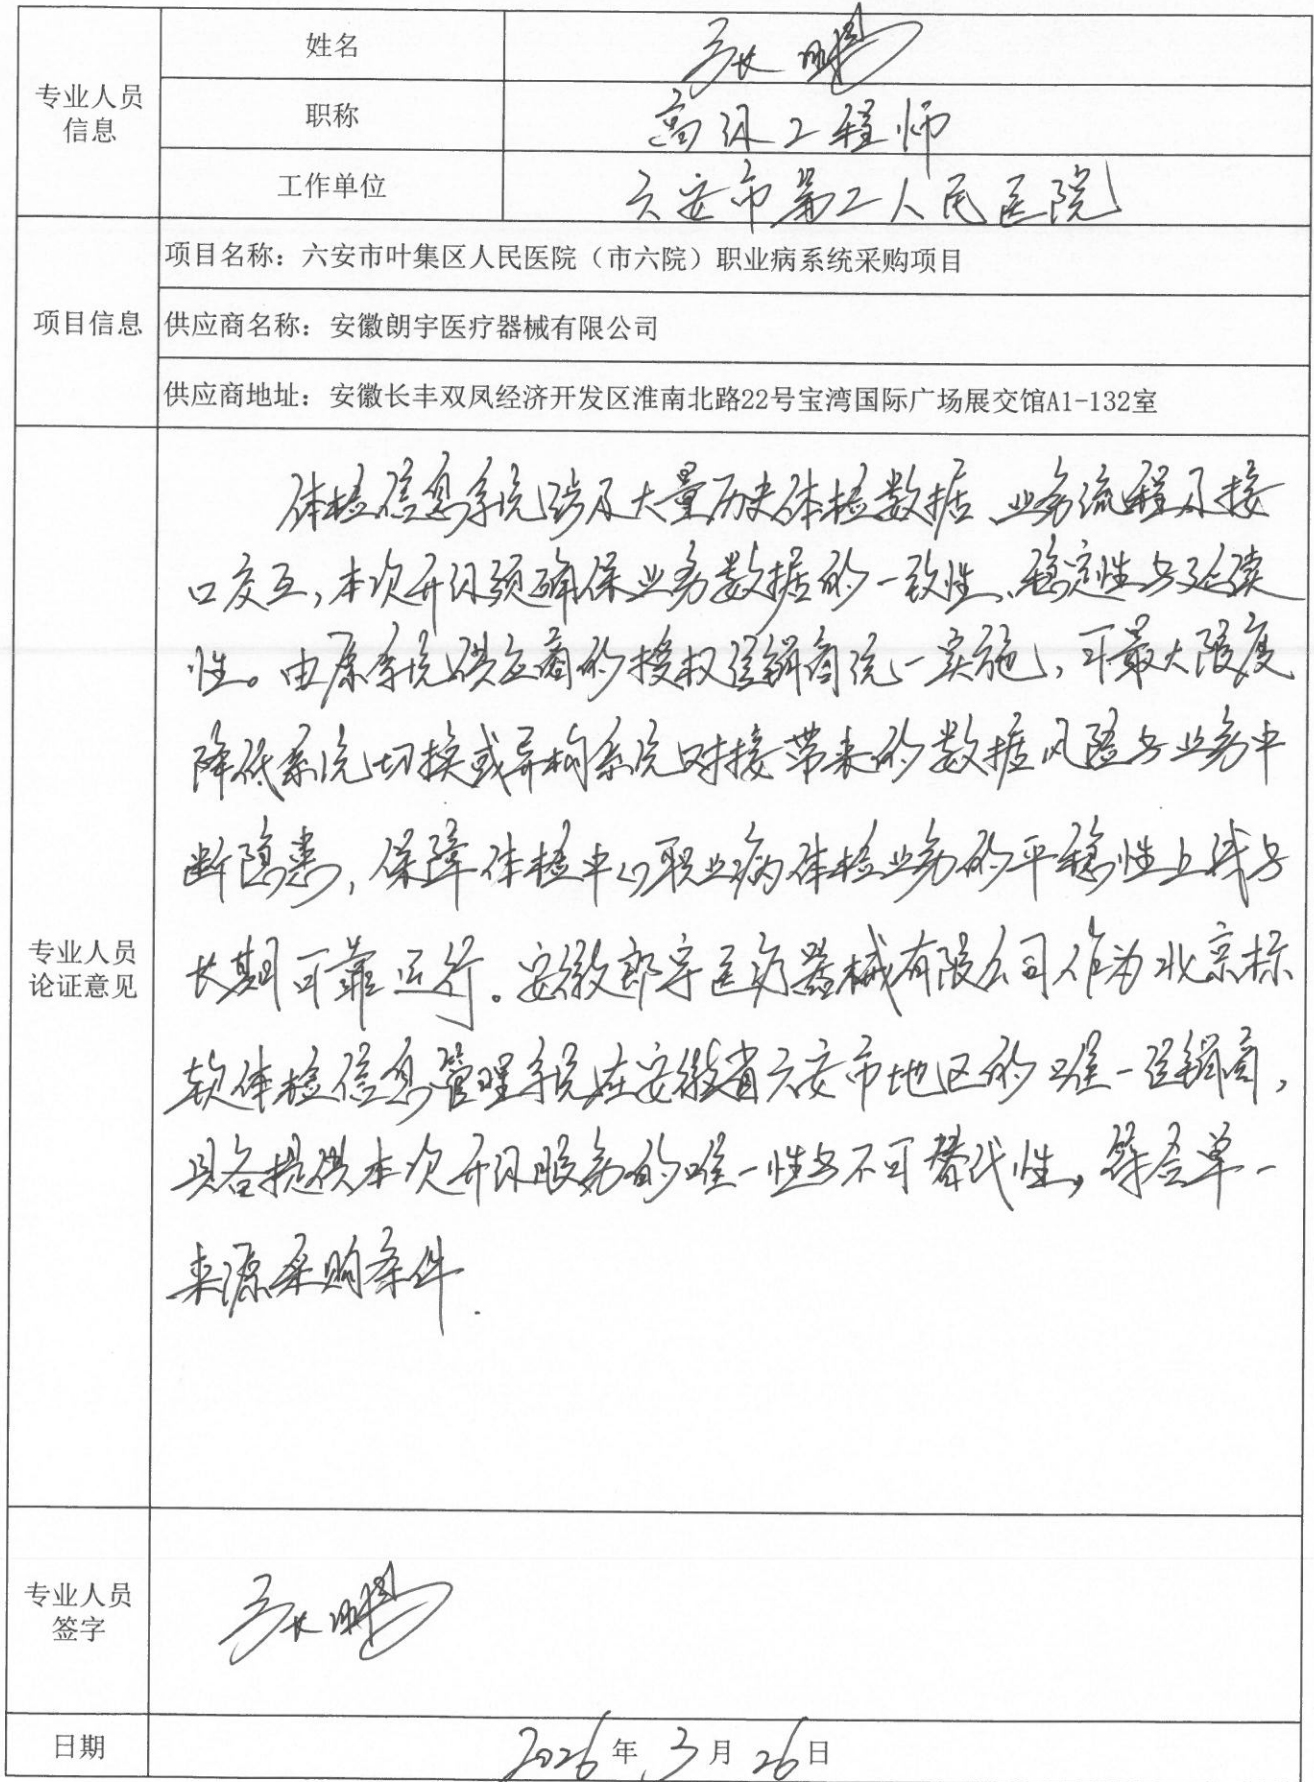 专业人员
信息
姓名
张鹏
职称
高级工程师
工作单位
六安市第二人民医院
项目信息
项目名称：六安市叶集区人民医院（市六院）职业病系统采购项目
供应商名称：安徽朗宇医疗器械有限公司
供应商地址：安徽长丰双凤经济开发区淮南北路22号宝湾国际广场展交馆A1-132室
专业人员
论证意见
体检信息系统涉及大量历史体检数据、业务流程及接
口交互，本次升级须确保业务数据的一致性、稳定性与延续
性。由原系统供应商的授权经销商统一实施，可最大限度
降低系统切换或异构系统对接带来的数据风险与业务中
断隐患，保障体检中心职业病体检业务的平稳性上线与
长期可靠运行。安徽郎宇医疗器械有限公司作为北京标
软体检信息管理系统在安徽省六安市地区的唯一经销商，
具备提供本次升级服务的唯一性与不可替代性，符合单一
来源采购条件.
专业人员
签字
张鹏
日期
2026年3月26日